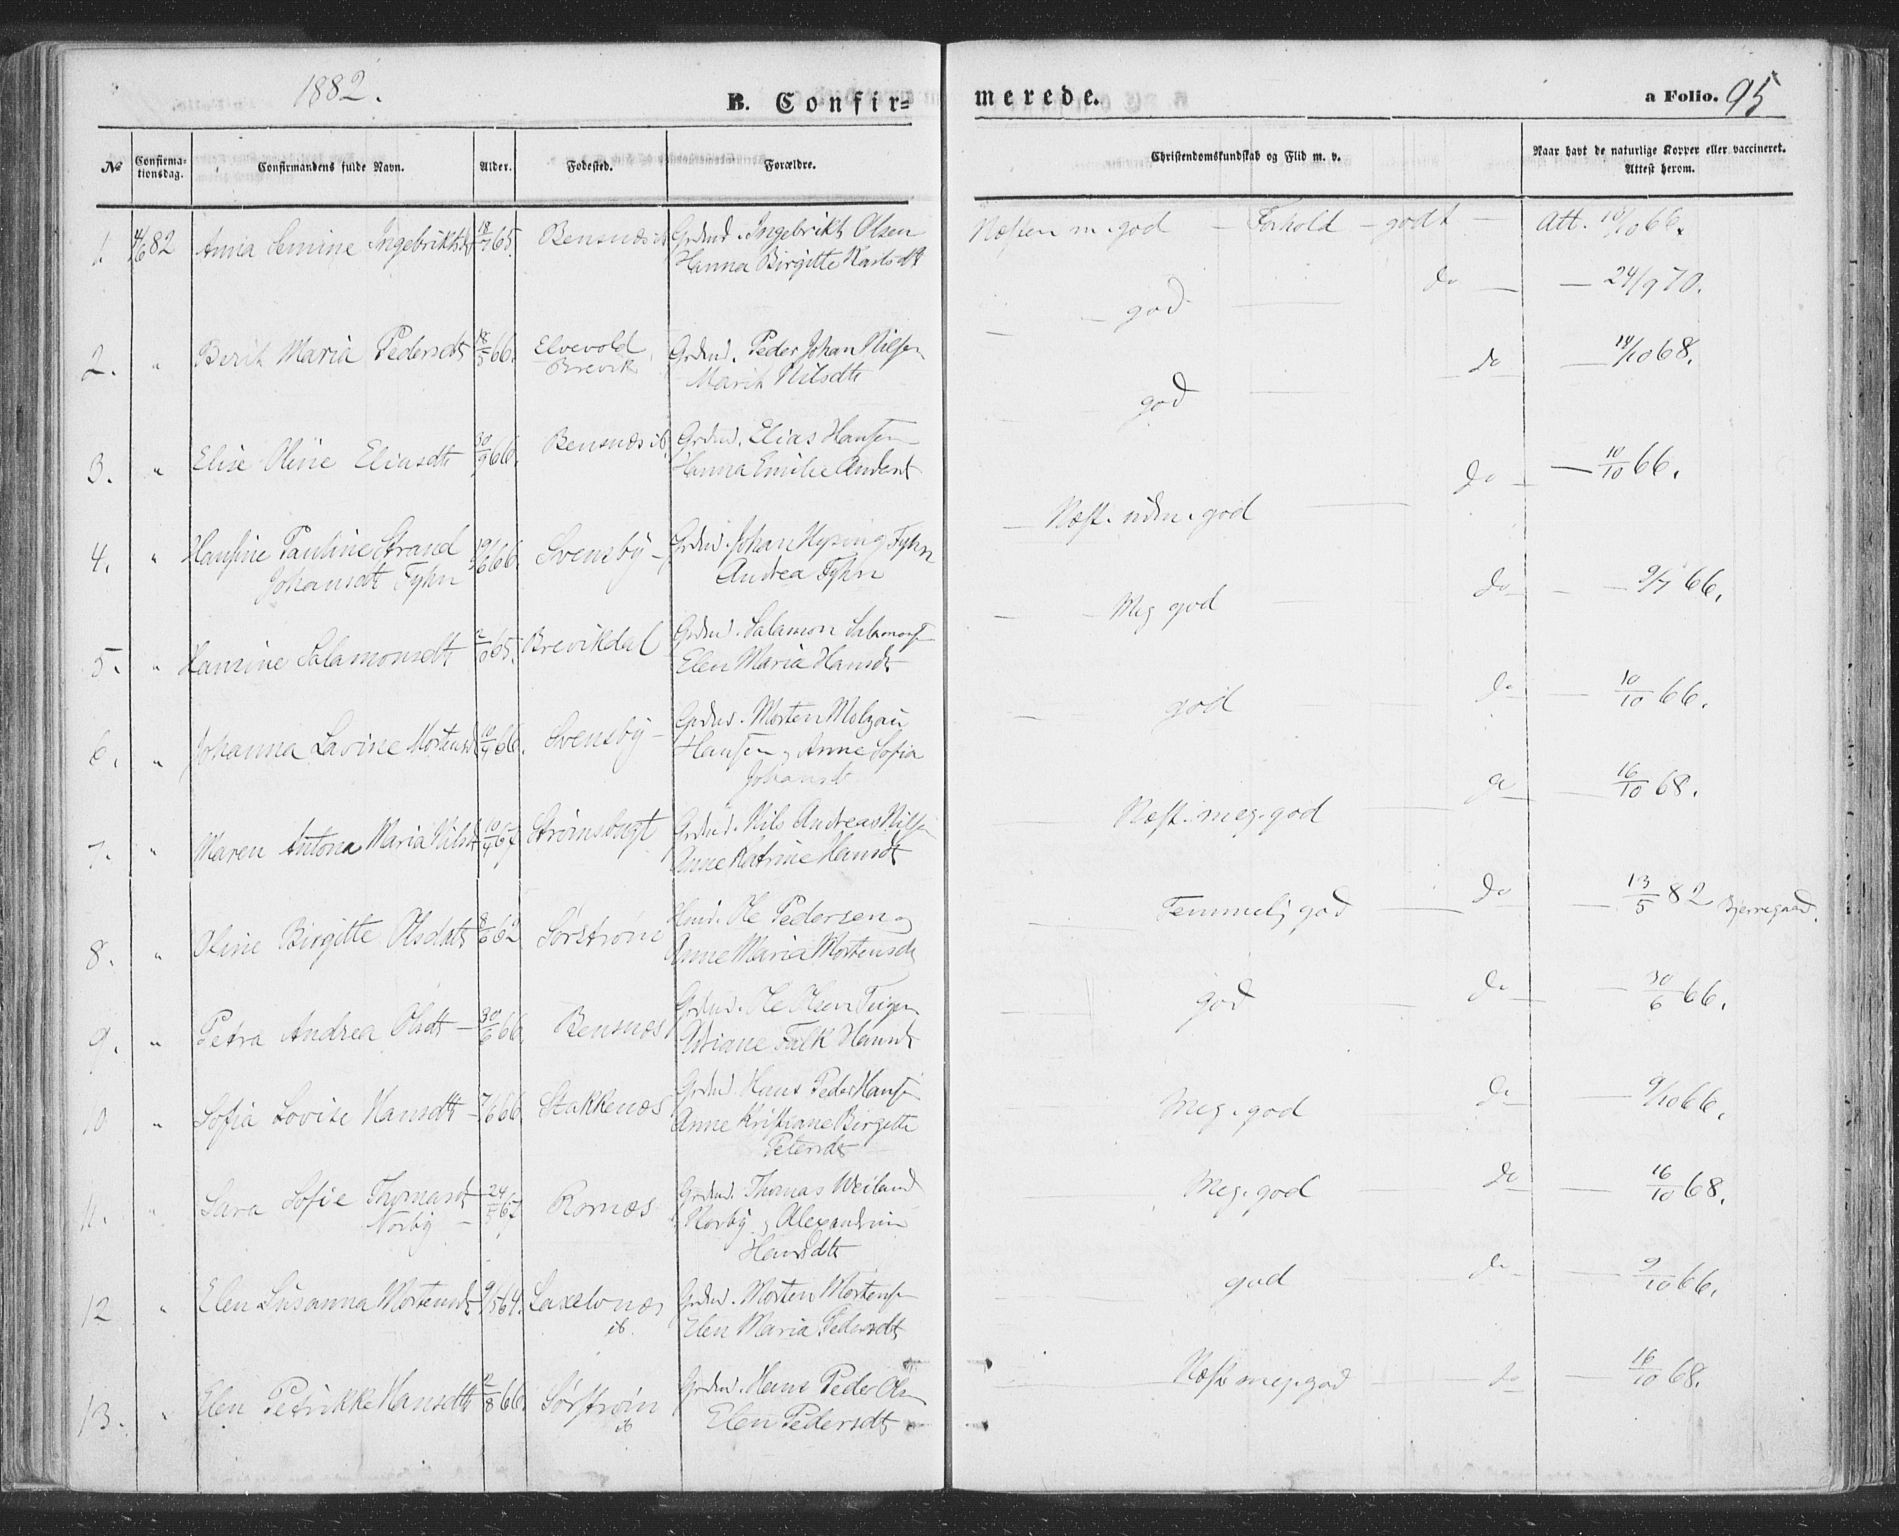 1882.
B. Confir=
merede.
a Folio. 95
No
Confirma-
tionsdag.
Confirmandens fulde Navn.
Alder.
Fødested.
Forældre.
Christendomskundskab og Flid m. v.
Naar havt de naturlige Kopper eller vaccineret.
Attest herom.
1. 4/6 82 Anna Semine Ingebriktsdt 18/7 65. Bensnæs ib Grdmd. Ingebrikt Olsen
Hanna Birgitte Karlsdt
Næsten m. god — Forhold — godt — Att. 10/10 66.
2. " Berit Maria Pedersdt 18/5 66. Elvevold Grdmd. Peder Johan Nilsen
Brevik Marit Nilsdt
god do — 24/9 70.
3. " Elise Oline Eliasdt 30/9 66. Bensnæs ib Grdmd. Elias Hansen
Hanna Emilie Andersdt
god do — 14/10 68.
4. " Hansine Pauline Strand 19/6 66. Svensby Grdmd. Johan Hysing Fyhn
Johansdt Fyhn Andrea Fyhn
Næst. uden. god do — 10/10 66.
5. " Hansine Salamonsdt 65. Brevikdal Grdmd. Salamon Salamons
Elen Maria Hansdt
Meg god do — 9/7 66.
6. " Johanna Lavine Mortensd 66. Svensby Grdmd. Morten Molzau
Hansen, Anne Sofia
Johansdt
god do — 10/10 66.
7. " Maren Antona Maria Nilsdt 10/4 67 Strømsbugt Grdmd. Nils Andreas Nilsen
Anne Katrine Hansdt
Næst. meg. god do — 16/10 68.
8. " Oline Birgitte Olsdatt 8/6 62 Sørstrøm Ole Pedersen og
Anne Maria Mortensd
Temmelig god do — 13/5 82 Bjerregaard.
9. " Petra Andrea Olsdt 30/6 66. Bensnæs Grdmd. Ole Olsen Teigen
Adriane Falk Hansdt
god do — 30/6 66.
10 " Sofia Lovise Hansdt 7/6 66. Stakkenæs Grdmd. Hans Peder Hansen
Anne Kristiane Birgitte
Petersdt
Meg. god do — 9/10 66.
11. " Sara Sofie Thomasdt 24/5 67 Kornæs Grdmd. Thomas Weiland
Norby Norby, Alexandrine
Hansdt
Meg. god do — 16/10 68.
12 " Elen Susanna Mortensdt 9/5 64. Laxelvnæs Grdmd. Morten Mortensen
ib. Elen Maria Pedersdt
god do — 9/10 66.
13. " Elen Petrikke Hansdt 2/8 66. Sørstrøm Grdmd. Hans Peder Olsen
ib Elen Pedersdt
Næst meg. god do — 16/10 68.